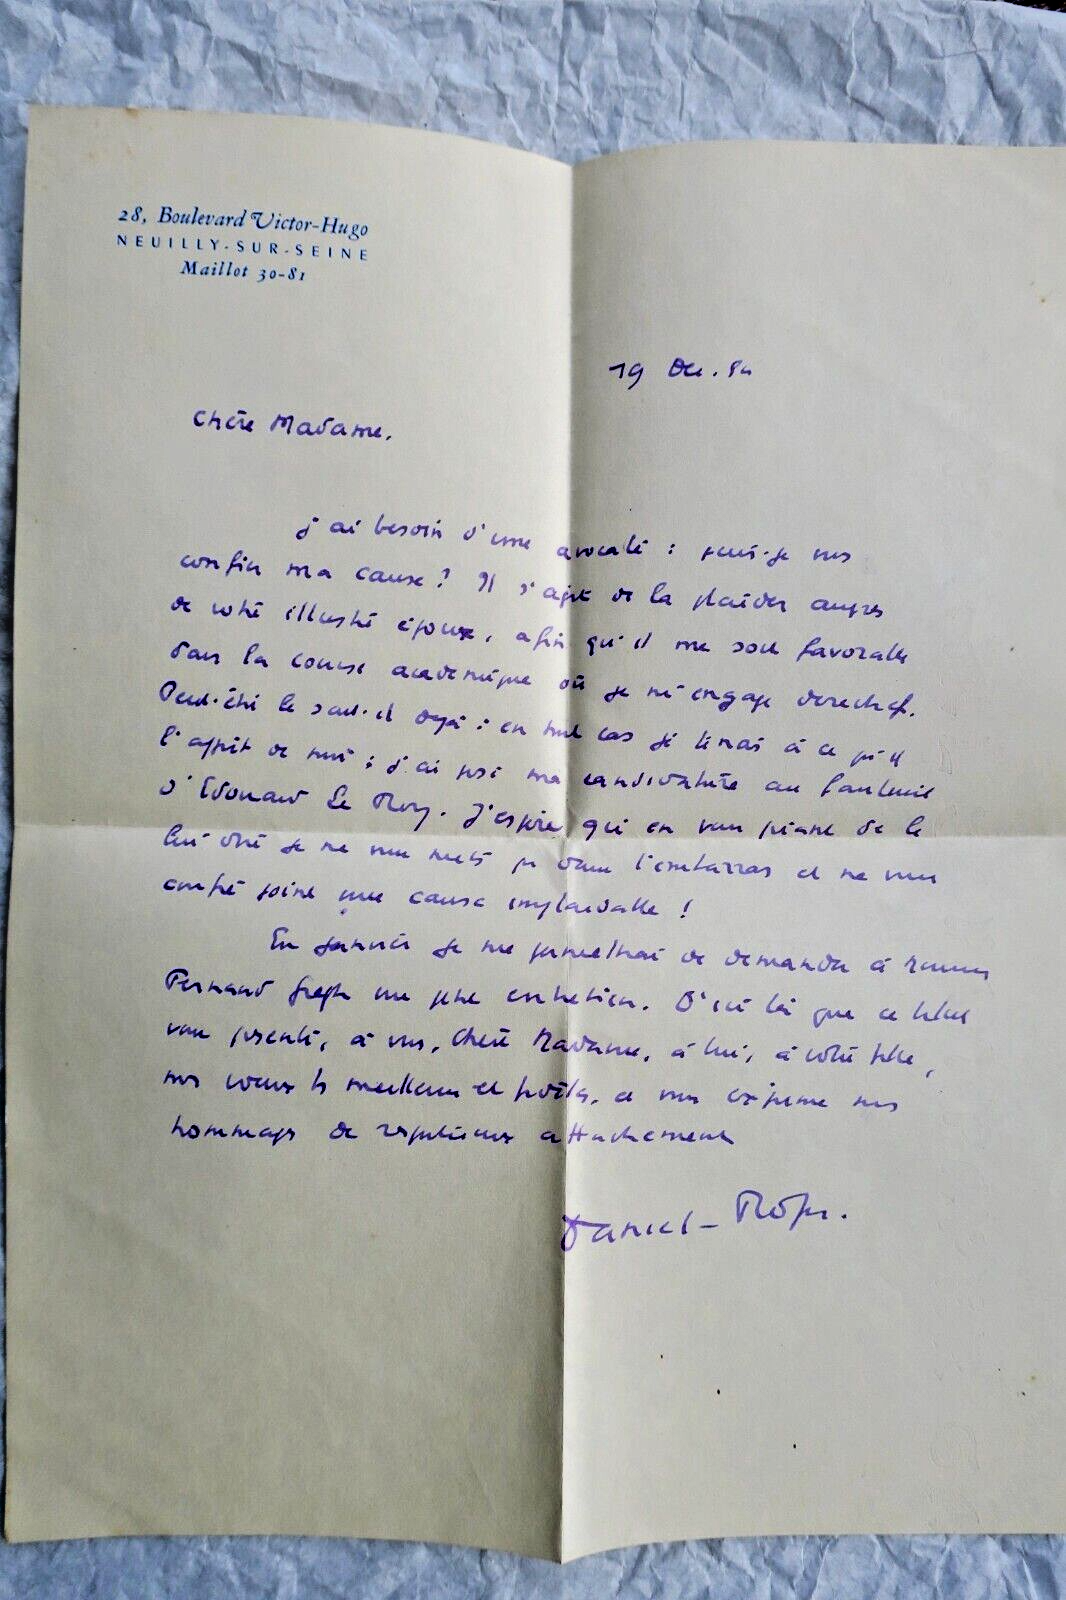 28, Boulevard Victor-Hugo
NEUILLY-SUR-SEINE
Maillot 30-81
19 Déc. 54
Chère Madame,
J'ai besoin d'une avocate : puis-je vous
confier ma cause ? Il s'agit de la plaider auprès
de votre illustre époux, afin qu'il me soit favorable
dans la course académique où je m'engage derechef.
Peut-être le sait-il déjà : en tout cas je tenais à ce qu'il
l'apprît de moi : j'ai posé ma candidature au fauteuil
d'Edouard Le Roy. J'espère qu'en vous priant de le
lui dire je ne vous mets pas dans l'embarras et ne vous
confie point une cause implaidable !
En janvier je me permettrai de demander à
Fernand Gregh un entretien. D'ici là que ce billet
vous présente, à vous, Chère Madame, à lui, à votre fille,
nos vœux les meilleurs et et vous exprime mes
hommages de respectueux attachement
Daniel-Rops.